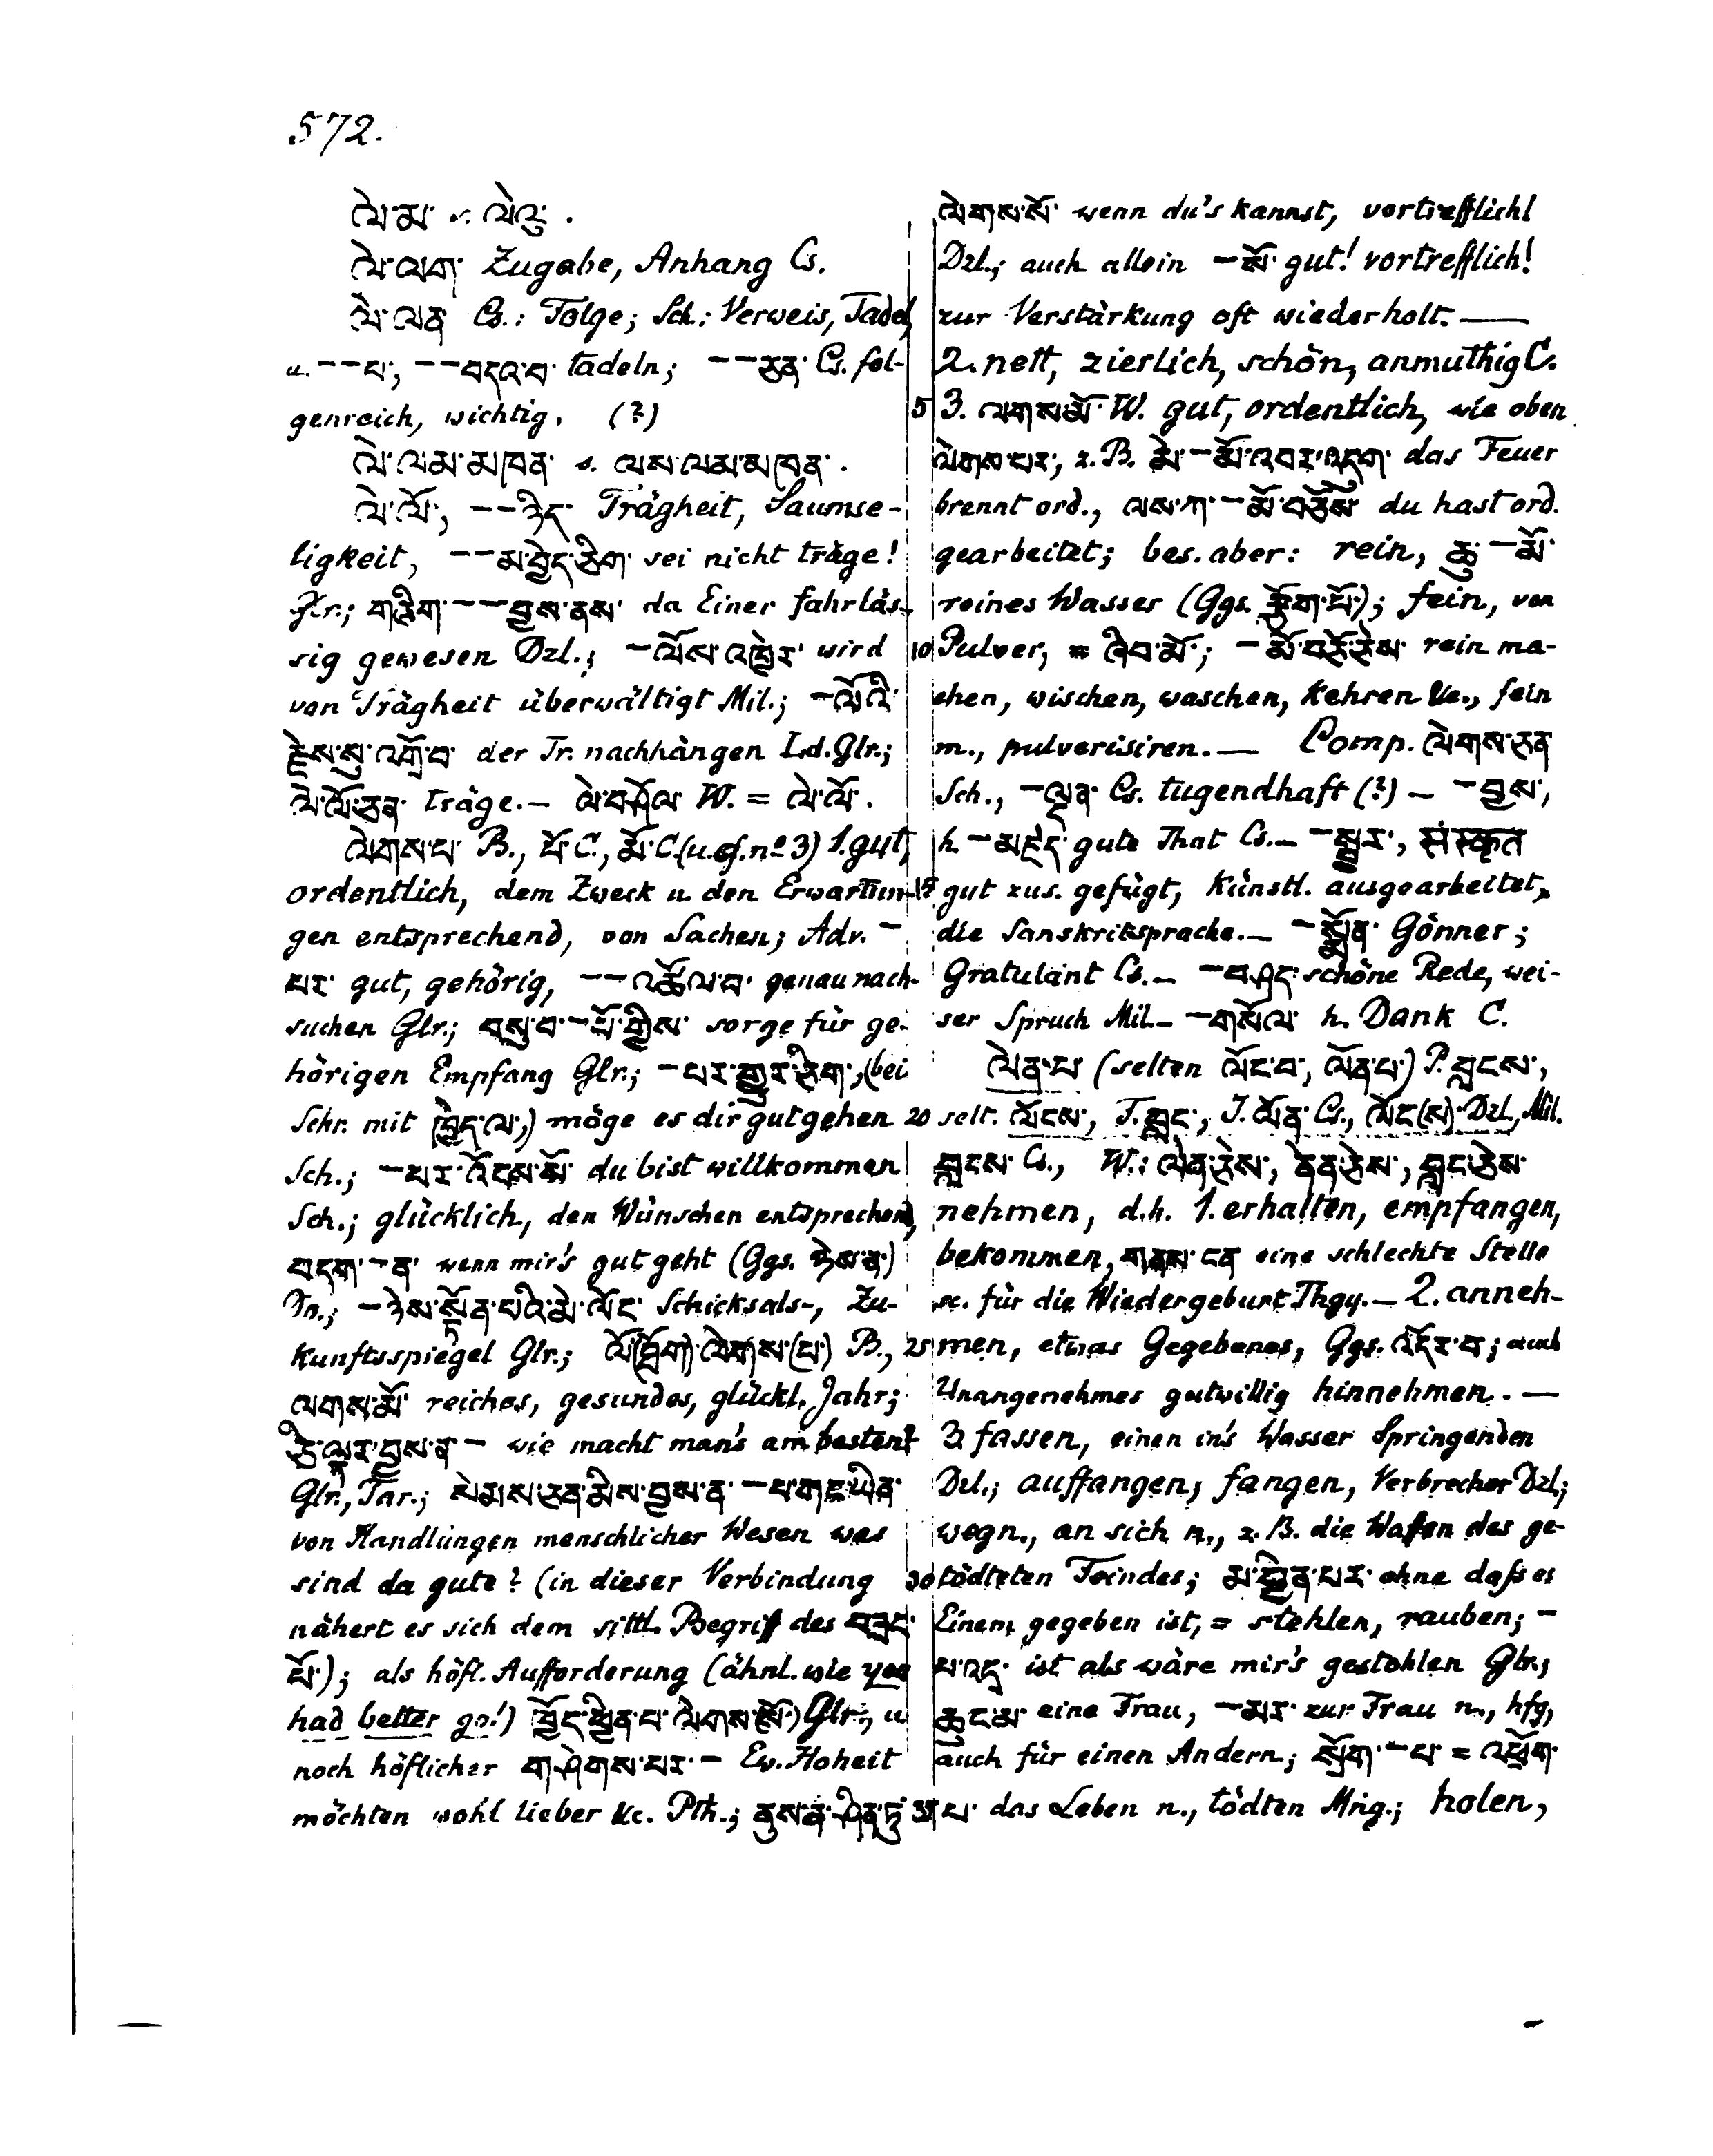 572.
ལེ་མ་ s. ལེའུ་ .
ལེ་ལག་ Zugabe, Anhang Cs.
ལེ་ལན་ Cs.: Folge; Sch.: Verweis, Tadel,
u. – – པ་, – – བདའ་བ་ tadeln; – – ཅན་ Cs. fol-
genreich, wichtig. (?)
ལེ་ལམ་མཁན་ s. ལས་ལམ་མཁན་ .
ལེ་ལོ་, – – ཉིད་ Trägheit, Saumse-
ligkeit, – – མ་བྱེད་ཅིག་ sei nicht träge!
Glr.; གཅིག་ – – བྱས་ནས་ da Einer fahrläs-
sig gewesen Dzl.; – ལོས་འཁྱེར་ wird
von Trägheit überwältigt Mil.; – ལོའི་
རྗེས་སུ་འགྲོ་བ་ der Tr. nachhängen Ld. Glr.;
ལེ་ལོ་ཅན་ träge. – ལེ་བཤོལ་ W. = ལེ་ལོ་ .
ལེགས་པ་ B., པོ་ C., མོ་ C. (u. cf. no 3) 1. gut,
ordentlich, dem Zweck u. den Erwartun-
gen entsprechend, von Sachen; Adv. –
པར་ gut, gehörig, – – འཚོལ་བ་ genau nach-
suchen Glr.; བསུ་བ་ – པོ་གྱིས་ sorge für ge-
hörigen Empfang Glr.; – པར་གྱུར་ཅིག་, (bei
Schr. mit ཁྱེད་ལ་,) möge es dir gut gehen
Sch.; – པར་འོངས་སོ་ du bist willkommen
Sch.; glücklich, den Wünschen entsprechend,
བདག་ – ན་ wenn mir's gut geht (Ggs. ཉེས་ན་)
Dn.; – ཉེས་སྟོན་པའི་མེ་ལོང་ Schicksals-, Zu-
kunftsspiegel Glr.; ལོ་(ཐོག)་ལེགས་(པ་) B.,
ལགས་མོ་ reiches, gesundes, glückl. Jahr;
ཅི་ལྟར་བྱས་ན་ – wie macht man's am besten?
Glr., Tar.; སེམས་ཅན་མིས་བྱས་ན་ – པ་གང་ཡིན་
von Handlungen menschlicher Wesen was
sind da gute? (in dieser Verbindung
nähert es sich dem sittl. Begriff des བཟང་
པོ་); als höfl. Aufforderung (ähnl. wie you
had better go!) ཁྱོད་ཕྱིན་པ་ལེགས་(སོ་) Glr., u.
noch höflicher གཤེགས་པར་ – Ew. Hoheit
möchten wohl lieber &c. Pth.; ནུས་ན་ཤིན་ཏུ་
ལེགས་སོ་ wenn du's kannst, vortrefflich!
Dzl.; auch allein – སོ་ gut! vortrefflich!
zur Verstärkung oft wiederholt. —
2. nett, zierlich, schön, anmuthig C.
5 3. ལགས་མོ་ W. gut, ordentlich, wie oben
ལེགས་པར་, z. B. མེ་ – མོ་འབར་འདུག་ das Feuer
brennt ord., ལས་ཀ་ – མོ་བཅོས་ du hast ord.
gearbeitet; bes. aber: rein, ཆུ་ – མོ་
reines Wasser (Ggs. རྙོག་པོ་); fein, von
10 Pulver, = ཞིབ་མོ་; – མོ་བཅོ་ཅེས་ rein ma-
chen, wischen, waschen, kehren &c., fein
m., pulverisiren. — Comp. ལེགས་ཅན
Sch., – ལྡན་ Cs. tugendhaft (?) – – བྱས་,
h. – མཛད་ gute That Cs. – – སྦྱར་, संस्कृत
15 gut zus. gefügt, künstl. ausgearbeitet,
die Sanskritsprache. – – སྨོན་ Gönner;
Gratulant Cs. – – བཤད་ schöne Rede, wei-
ser Spruch Mil. – – གསོལ་ h. Dank C.
ལེན་པ་ (selten ལོང་བ་, ལོན་པ་) P. བླངས་,
20 selt. ལོངས་, F. བླང་, I. ལོན་ Cs., ལོང་(ས)་ Dzl., Mil.
བླངས་ Cs., W.: ལེན་ཅེས་, ནེན་ཅེས་, བླང་ཅེས་
nehmen, d. h. 1. erhalten, empfangen,
bekommen, གནས་ངན eine schlechte Stelle
&c. für die Wiedergeburt Thgy. – 2. anneh-
25 men, etwas Gegebenes, Ggs. འདོར་བ་; auch
Unangenehmes gutwillig hinnehmen. —
3. fassen, einen in's Wasser Springenden
Dzl.; auffangen; fangen, Verbrecher Dzl.;
wegn., an sich n., z. B. die Waffen des ge-
30 tödteten Feindes; མ་བྱིན་པར་ ohne daſs es
Einem gegeben ist, = stehlen, rauben; –
པ་འདྲ་ ist als wäre mir's gestohlen Glr.;
ཆུང་མ་ eine Frau, – མར་ zur Frau n., hfg,
auch für einen Andern; སྲོག་ – པ་ = འཕྲོག་
35 པ་ das Leben n., tödten Mng.; holen,